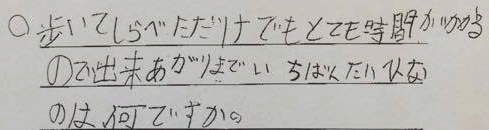 ○歩いてしらべただけでもとても時間がかかる
ので出来あがりまでいちばんたいへんな
のは何ですか。